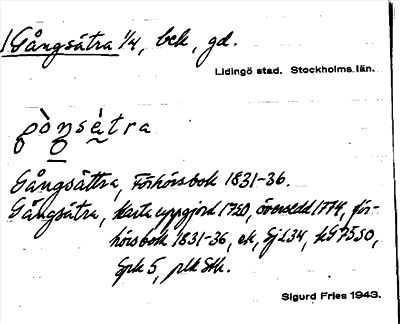 Gångsätra 1/4, bek, gd.
Lidingö stad. Stockholms län.
gòngsètra
Gångsättra, Förhörsbok 1831-36.
Gångsätra, Karta uppgjord 1750, översedd 1774, för-
hörsbok 1831-36, ek, Gj 234, kG 7550,
Gpk 5, plk Sthm.
Sigurd Fries 1943.